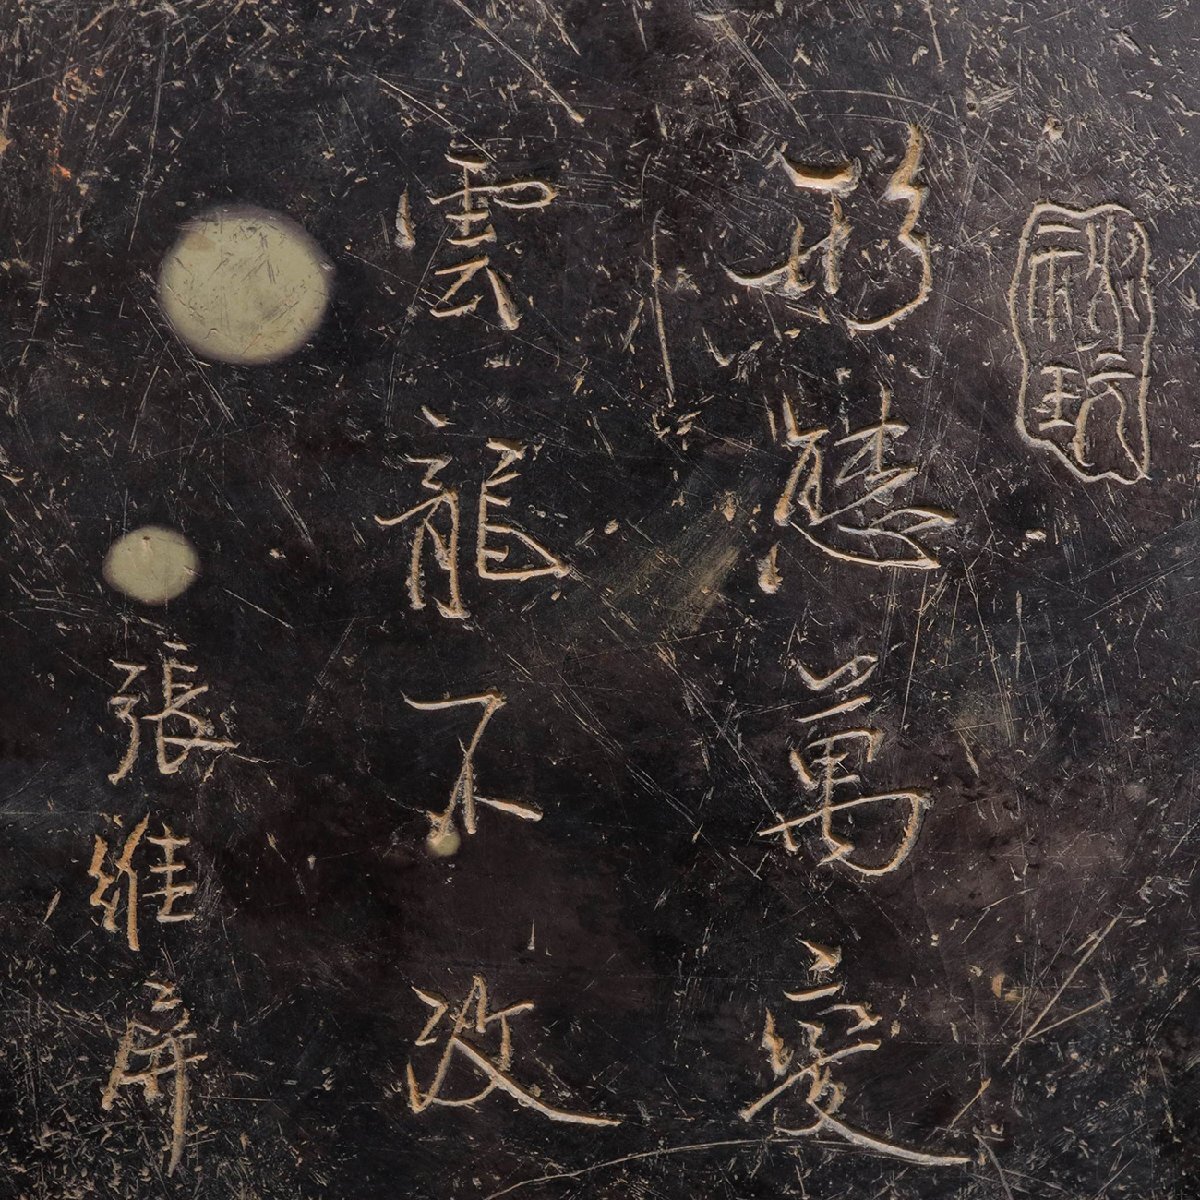 形態萬變
雲龍不改
張維屏